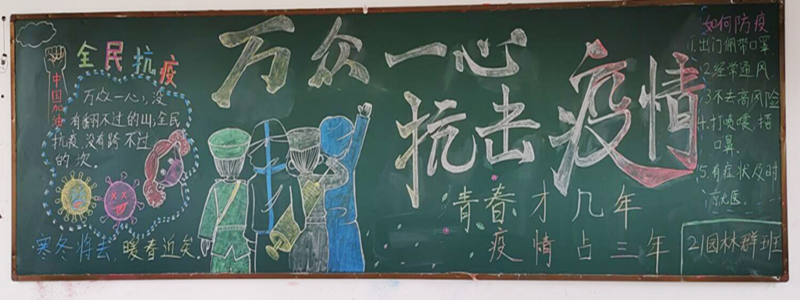 全民抗疫
中国加油
万众一心，没
有翻不过的山，全民
抗疫，没有跨不过
的坎
寒冬将去，暖春近矣。
万众一心
抗击疫情
青春才几年
疫情占三年
如何防疫
1.出门佩带口罩
2.经常通风
3.不去高风险
4.打喷嚏，捂
口鼻
5.有症状及时
就医。
21园林群班